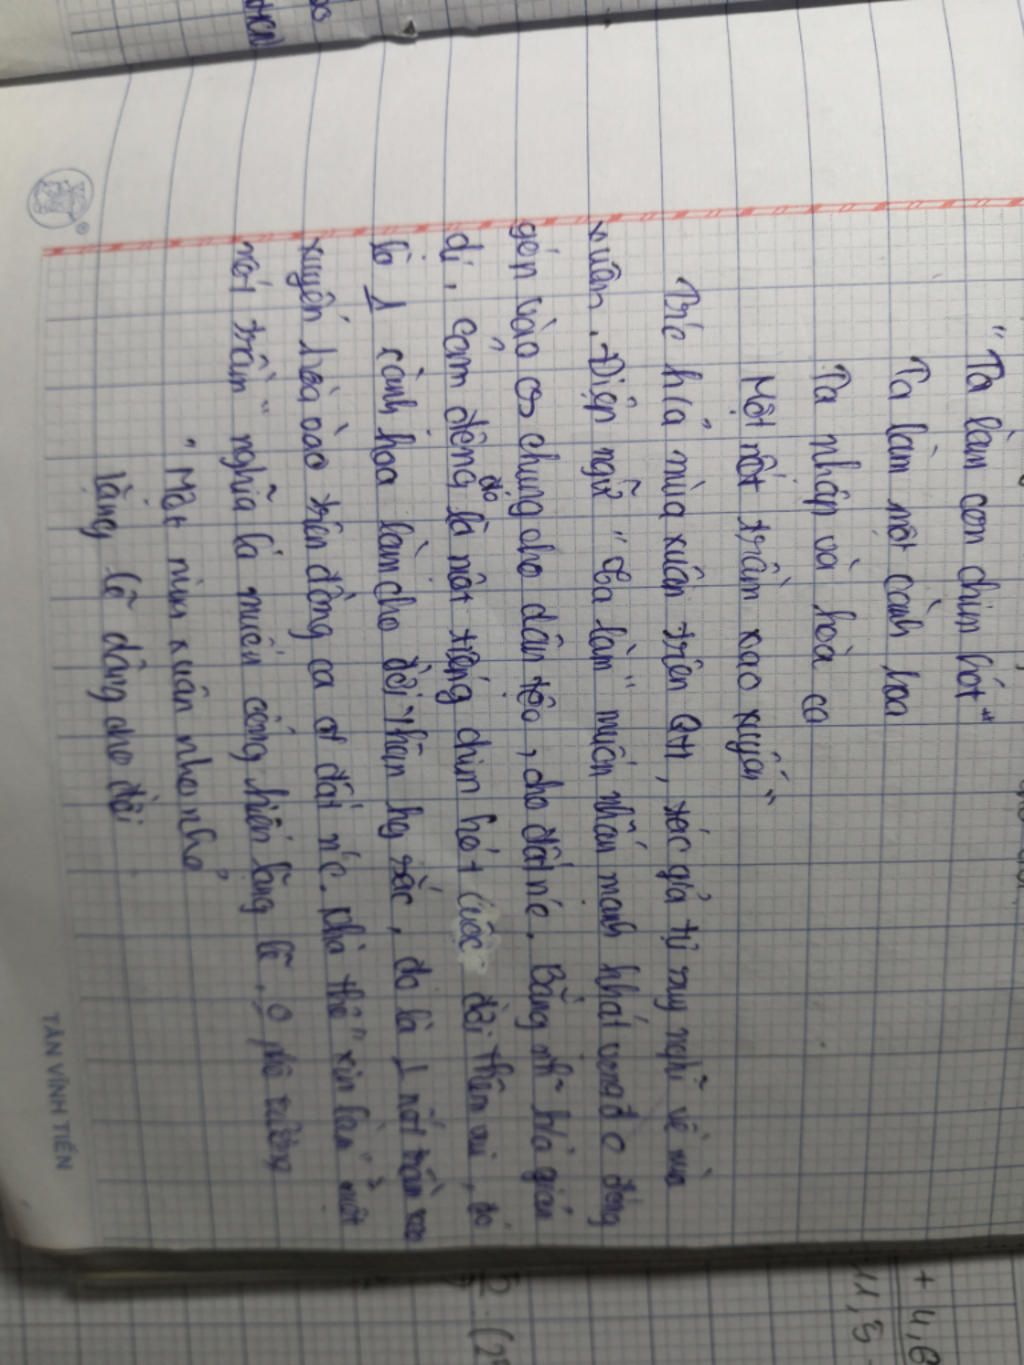 "Ta làm con chim hót"
Ta làm một cành hoa
Ta nhập và hòa ca
Một nốt trầm xao xuyến"
mùa xuân trên QH, tác giả tự suy nghĩ về mùa
xuân. Điệp ngữ "ta làm" muốn nhấn mạnh khát vọng đ o đóng
góp vào chung cho dân tộc, cho đất n'c. Bằng giản
dị, cảm động đó là một tiếng chim hót cuộc đời thêm vui, đó
là 1 cành hoa làm cho đời thêm hg sắc, đó là 1 nốt trầm xao
xuyến hòa vào trên đồng ca đất n'c. "xin làm một
nốt trầm" nghĩa là muốn cống hiến lặng lẽ, o phô trương
"Một mùa xuân nho nhỏ
Lặng lẽ dâng cho đời
TÂN VĨNH TIẾN
+ 4,6
11,5